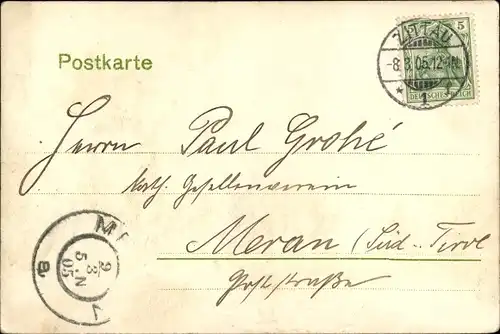 Postkarte
5
ZITTAU
-8.3.05.12-1N.
* 1
DEUTSCHES REICH
Herrn Paul Grohé
Kath. Gesellenverein
Meran (Süd-Tirol
Poststraße
ME
9
3
5.N
05
a
1